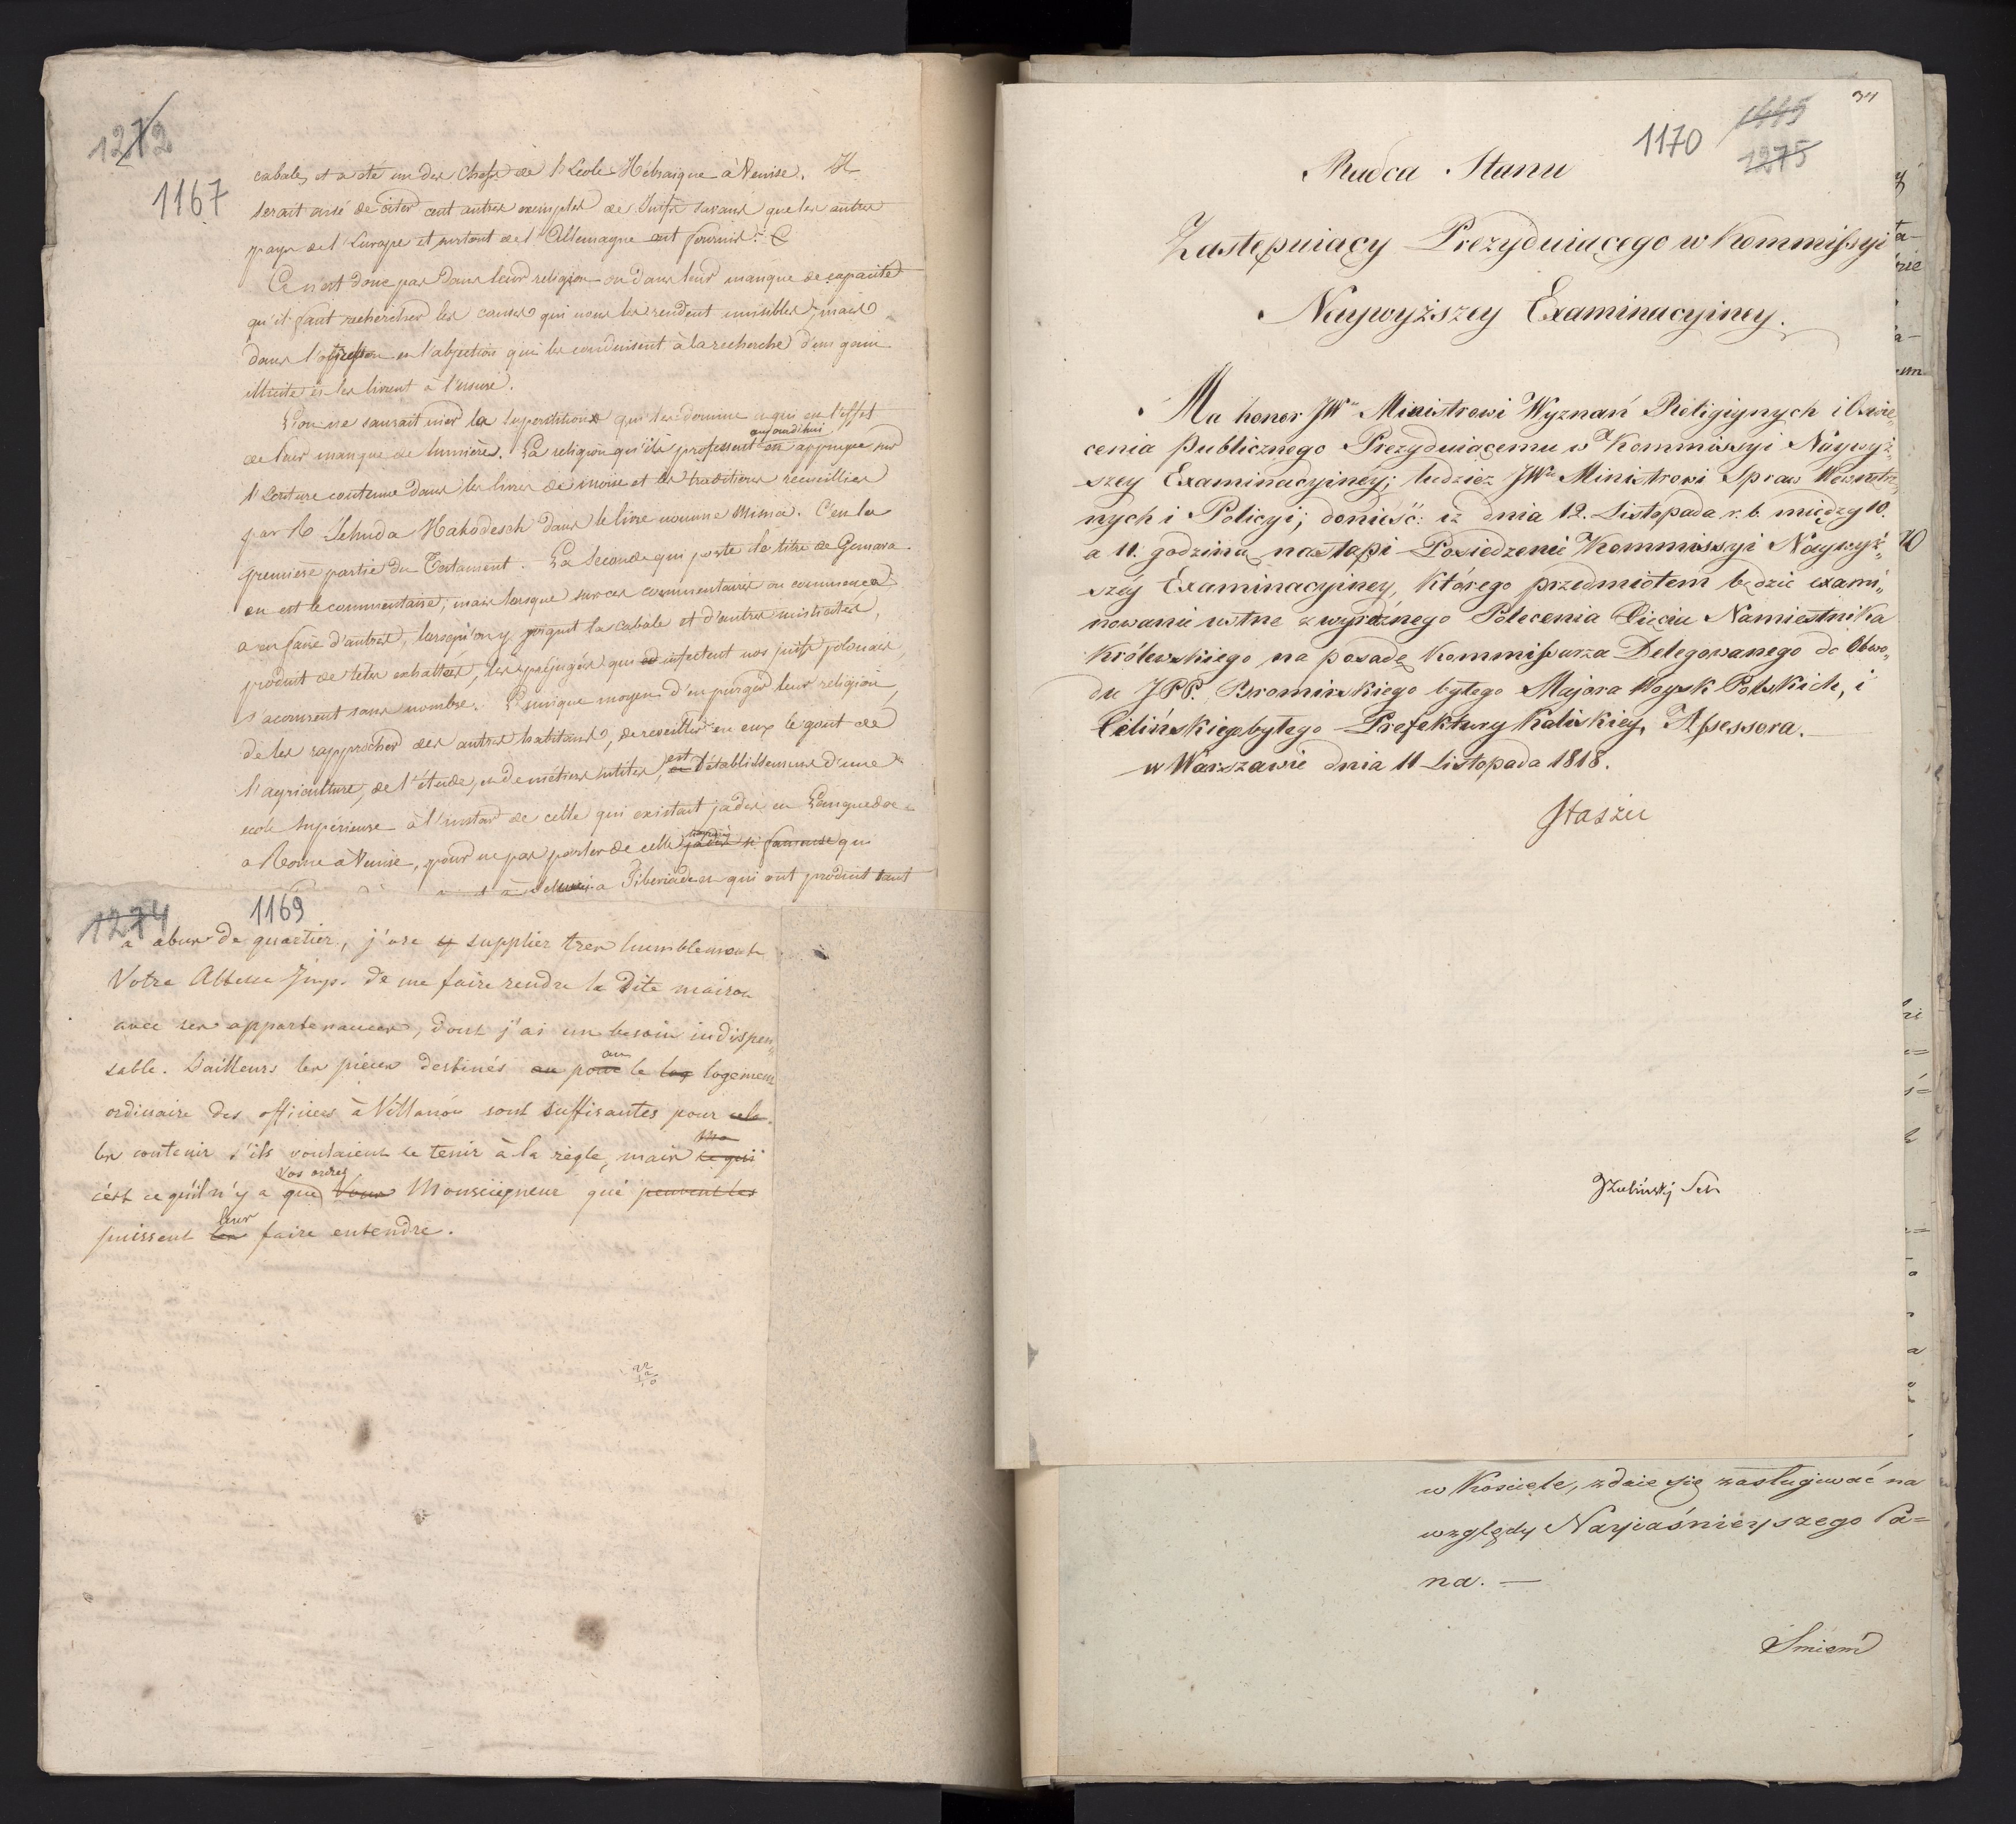 1272
1167
cabale, et a été un des Chefs de l'Ecole Hébraique à Venise. Il
serait aisé de citer cent autres exemples de Juifs savans que les autres
pays de l'Europe et surtout de l'Allemagne ont fournis.
Ce n'est donc pas dans leur religion ou dans leur manque de capacité
qu'il faut rechercher les causes qui nous les rendent nuisibles, mais
dans l'oppression et l'abjection qui les conduisent à la recherche d'un gain
illicite et les livrent à l'usure.
L'on ne saurait nier la superstition qui les domine et qui est l'effet
aujourdhui
de leur manque de lumières. La religion qu'ils professent est appuyée sur
l'Ecriture contenue dans les livres de Moise et les traditions recueillies
par R. Jehuda Hakodesch dans le livre nommé Misna. C'est la
premiere partie du Testament. La Seconde qui porte le titre de Gemara
en est le commentaire; mais lorsque sur ces commentaires on commença
a en faire d'autres, lorsqu'on y joignit la cabale et d'autres
produit de têtes exhaltées, les préjugés qui infectent nos juifs polonais
s'accrurent sans nombre. L'unique moyen d'en purger leur religion,
de les rapprocher des autres habitans, de reveiller en eux le gout de
l'agriculture, de l'étude, et de métiers utiles, est l'établissement d'une
ecole Supérieure à l'instar de celle qui existait jadis en Languedoc
a Rome à Venise, pour ne pas parler de celle jadis si fameuse qui
a Tiberiade et qui ont produit tant
1274
1169
à abus de quartier, j'ose supplier tres humblement
Votre Altesse Imp. de me faire rendre la dite maison
avec ses appartenances, dont j'ai un besoin indispen„
sable. D'ailleurs les pièces destinés au pour le log logement
au
ordinaire des officiers à Villanów sont suffisantes pour cela
les contenir s'ils voulaient se tenir à la règle, mais ce qui
Vos ordres
c'est ce qu'il n'y a que Vous Monseigneur qui peuvent les
leur
puissent les faire entendre.
34
1445
1170
1275
Radca Stanu
Zastępuiący Prezyduiącego w Kommissyi
Naywyższey Examinacyiney.
Ma honor JW. Ministrowi Wyznań Religiynych i Oświe„
cenia Publicznego Prezyduiącemu w Kommissyi Naywyż„
szey Examinacyiney; tudzież JW. Ministrowi Spraw Wewnętrz„
nych i Policyi; donieść: iż dnia 12. Listopada r. b. między 10.
a 11. godziną nastąpi Posiedzenie Kommissyi Naywyż„
széy Examinacyiney, którego przedmiotem będzie exami„
nowanie ustne z wyraźnego Polecenia Xięcia Namiestnika
Królewskiego na posadę Kommissarza Delegowanego do Obwo„
du JPP. Bromirskiego byłego Majora Woysk Polskich, i
Cilińskiego byłego Prefektury Kaliskiey, Assessora.
w Warszawie dnia 11 Listopada 1818.
Staszic
w Kościele, zdaie się zasługiwać na
względy Nayiaśnieyszego Pa=
na. —
Smiem